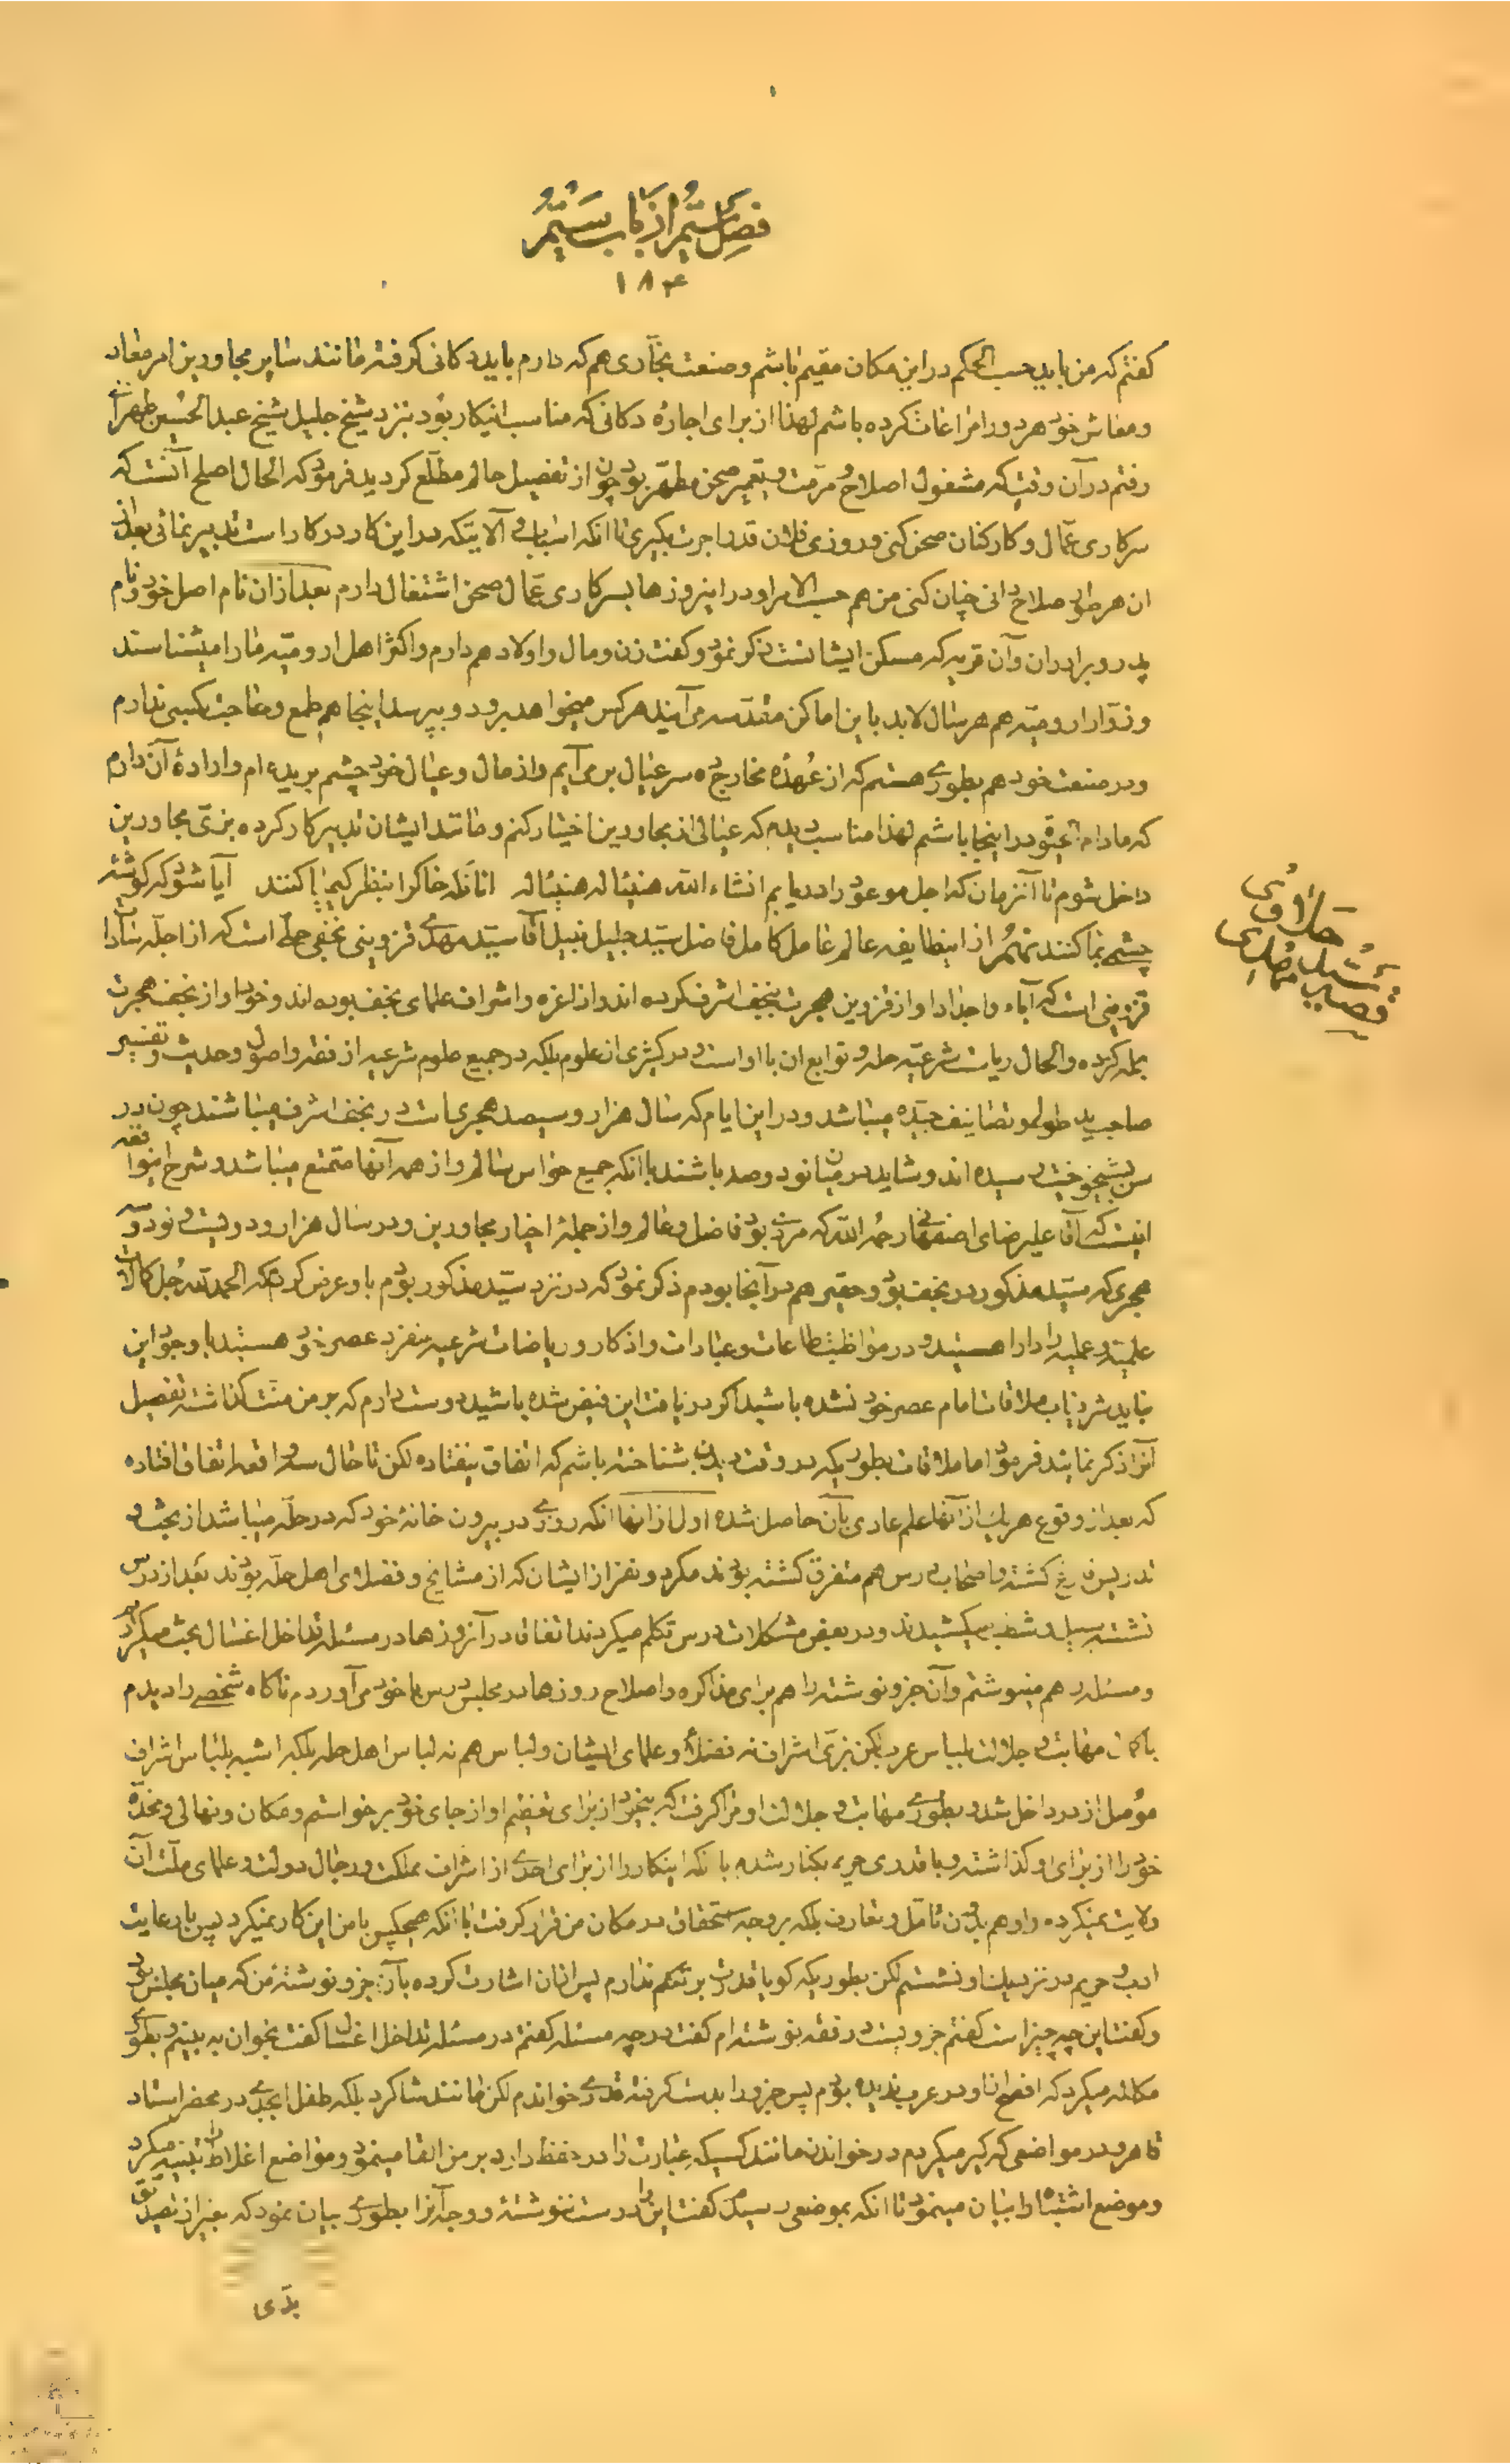 فصل ششم از باب ششم
۱۸۴
گفتم که من باید حسب الحکم در این مکان مقیم باشم و صنعت نجاری هم که دارم باید دکانی گرفته مانند سایر مجاورین امر معاد
و معاش خود هر دو را مراعات کرده باشم لهذا از برای اجاره دکانی که مناسب اینکار بود بنزد شیخ جلیل شیخ عبدالحسین طهرانی
رفتم در آن وقتی که مشغول اصلاح و مرمت و تعمیر صحن مطهر بود چون از تفصیل حالم مطلع گردید فرمود که الحال اصلح آنست که
سرکاری عمال و کارکنان صحن کنی و روزی فلان قدر اجرت بگیری تا آنکه اسباب و آلاتیکه در این کار در کار است تدبیر نمائی بعد از
ان هر طور صلاح دانی چنان کنی من هم حسب الامر او در اینروزها بسرکاری عمال صحن اشتغال دارم بعد از آن نام اصل خود و نام
پدر و برادران و آن قریه که مسکن ایشانست ذکر نمود و گفت زن و مال و اولاد هم دارم و اکثر اهل ارومیه مارا میشناسند
و زوار ارومیه هم هر سال لابد باین اماکن مقدسه می‌آیند هرکس میخواهد برود و بپرسد اینجا هم طمع و حاجت بکسی ندارم
و در صنعت خود هم بطوری هستم که از عهده مخارج ده سر عیال برمی‌آیم و از مال و عیال خود چشم بریده ام و اراده آن دارم
که مادام العمر در اینجا باشم لهذا مناسب دیدم که عیالی از مجاورین اختیار کنم و مانند ایشان تدبیر کار کرده بزی مجاورین
داخل شوم تا آنزمان که اجل موعود را دریابم انشاء الله هنیئا له هنیئا له آنانکه خاک را بنظر کیمیا کنند آیا شود که گوشه
چشمی بما کنند نهم از اینطایفه عالم عامل کامل فاضل سید جلیل نبیل آقا سید مهدی قزوینی نجفی حلی است که از اجله سادات
قزوینی است که آباء و اجداد او از قزوین هجرت بنجف اشرف کرده اند و از اعزه و اشراف علمای نجف بوده اند و خود او از نجف هجرت
بحله کرده و الحال ریاست شرعیه حله و توابع ان با او است و در کثیری از علوم بلکه در جمیع علوم شرعیه از فقه و اصول و حدیث و تفسیر
صاحب ید طولی و تصانیف جیده میباشد و در این ایام که سال هزار و سیصد هجری است در نجف اشرف میباشند چون در
سن بشیخوخیت رسیده اند و شاید در میان نود و صد باشند با انکه جمیع حواس سالم و از همه آنها متمتع میباشد و شرح اینواقعه
اینست که آقا علیرضای اصفهانی رحمه الله که مردی بود فاضل و عالم و از جمله اخیار مجاورین و در سال هزار و دویست و نود و سه
هجری که سید مذکور در نجف بود و حقیر هم در آنجا بودم ذکر نمود که در نزد سید مذکور بودم باو عرض کردم که الحمد لله جل کمالات
علمیه و عملیه را دارا هستید و در مواظبت طاعات و عبادات و اذکار و ریاضات شرعیه منفرد عصر خود هستید با وجود این
نباید شرفیاب ملاقات امام عصر خود نشده باشید اگر دریافت این فیض شده باشید دوست دارم که بر من منت گذاشته تفصیل
آنرا ذکر نمایند فرمود اما ملاقات بطوریکه در وقت دیدن شناخته باشم که اتفاق نیفتاده لکن تا حال سه واقعه اتفاق افتاده
که بعد از وقوع هریک از آنها علم عادی بآن حاصل شده اول از انها انکه روزی در بیرون خانه خود که در حله میباشد از بحث و
تدریس فارغ گشته و اصحاب درس هم متفرق گشته بودند مگر دو نفر از ایشان که از مشایخ و فضلای اهل حله بودند بعد از درس
نشسته سبیل و شطب میکشیدند و در بعض مشکلات درس تکلم میکردند اتفاقا در آنروزها در مسئله تداخل اغسال بحث میکردیم
و مسئله را هم مینوشتم و آن جزو نوشته را هم برای مذاکره و اصلاح روزها در مجلس درس با خود می‌آوردم ناگاه شخصی را دیدم
با کمال مهابت و جلالت بلباس عرب لکن بزی اشراف نه فضلاء و علمای ایشان و لباس هم نه لباس اهل حله بلکه اشبه بلباس اشراف
موصل از در داخل شد و بطوری مهابت و جلالت او مرا گرفت که بیخود از برای تعظیم او از جای خود برخواستم و مکان و نهالی و مخده
خود را از برای او گذاشته و با قدری حریم بکنار شدم با آنکه اینکار را از برای احدی از اشراف مملکت و رجال دولت و علمای ملت آن
ولایت نمیکرده و او هم بدون تامل و تعارف بلکه بر وجه استحقاق در مکان من قرار گرفت با آنکه هیچکس با من این کار نمیکرد پس با رعایت
ادب و حریم در نزدیک او نشستم لکن بطوریکه گویا قدرت بر تکلم ندارم پس از ان اشارت کرده بآن جزو نوشته من که میان مجلس بود
و گفت این چه چیز است گفتم جزویست در فقه نوشته ام گفت در چه مسئله گفتم در مسئله تداخل اغسال گفت بخوان به بینم و بطوری
مکالمه میکرد که افصح از او در عرب ندیده بودم پس جزو را بدست گرفته قدری خواندم لکن مانند شاگرد بلکه طفل ابجدی در محضر استاد
ماهر و در مواضعی که گیر میکردم در خواندن مانند کسیکه عبارت را در حفظ دارد بر من القا مینمود و مواضع اغلاط را تنبیه میکرد
و موضع اشتباه را بیان مینمود تا انکه بموضعی رسیدم گفت این را درست ننوشتۀ و وجه آنرا بطوری بیان نمود که بغیر از تصدیق
بدی
حکاوی
سید مهدی